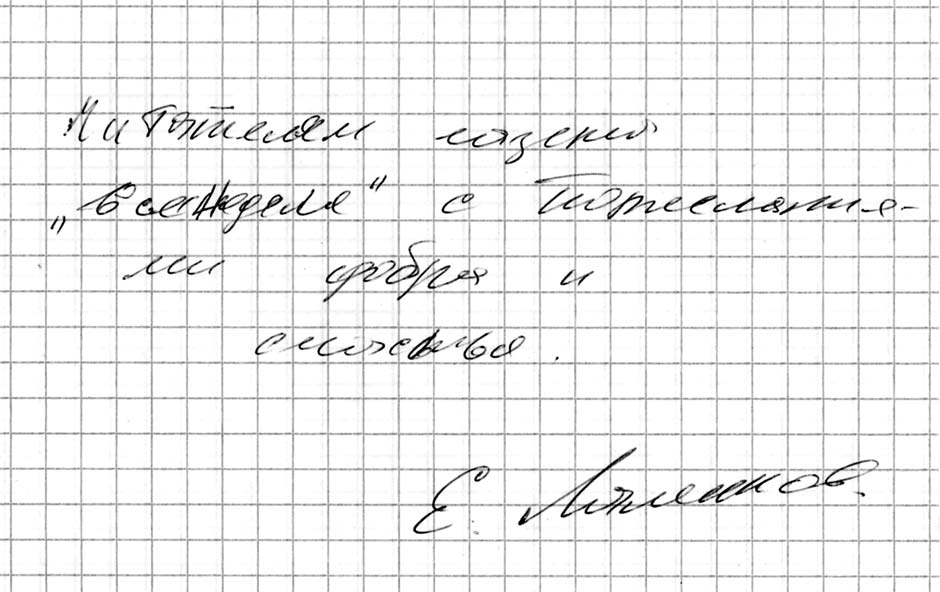 Читателям газеты
„Вся Неделя" с пожелания-
ми добра и
счастья.
Е.